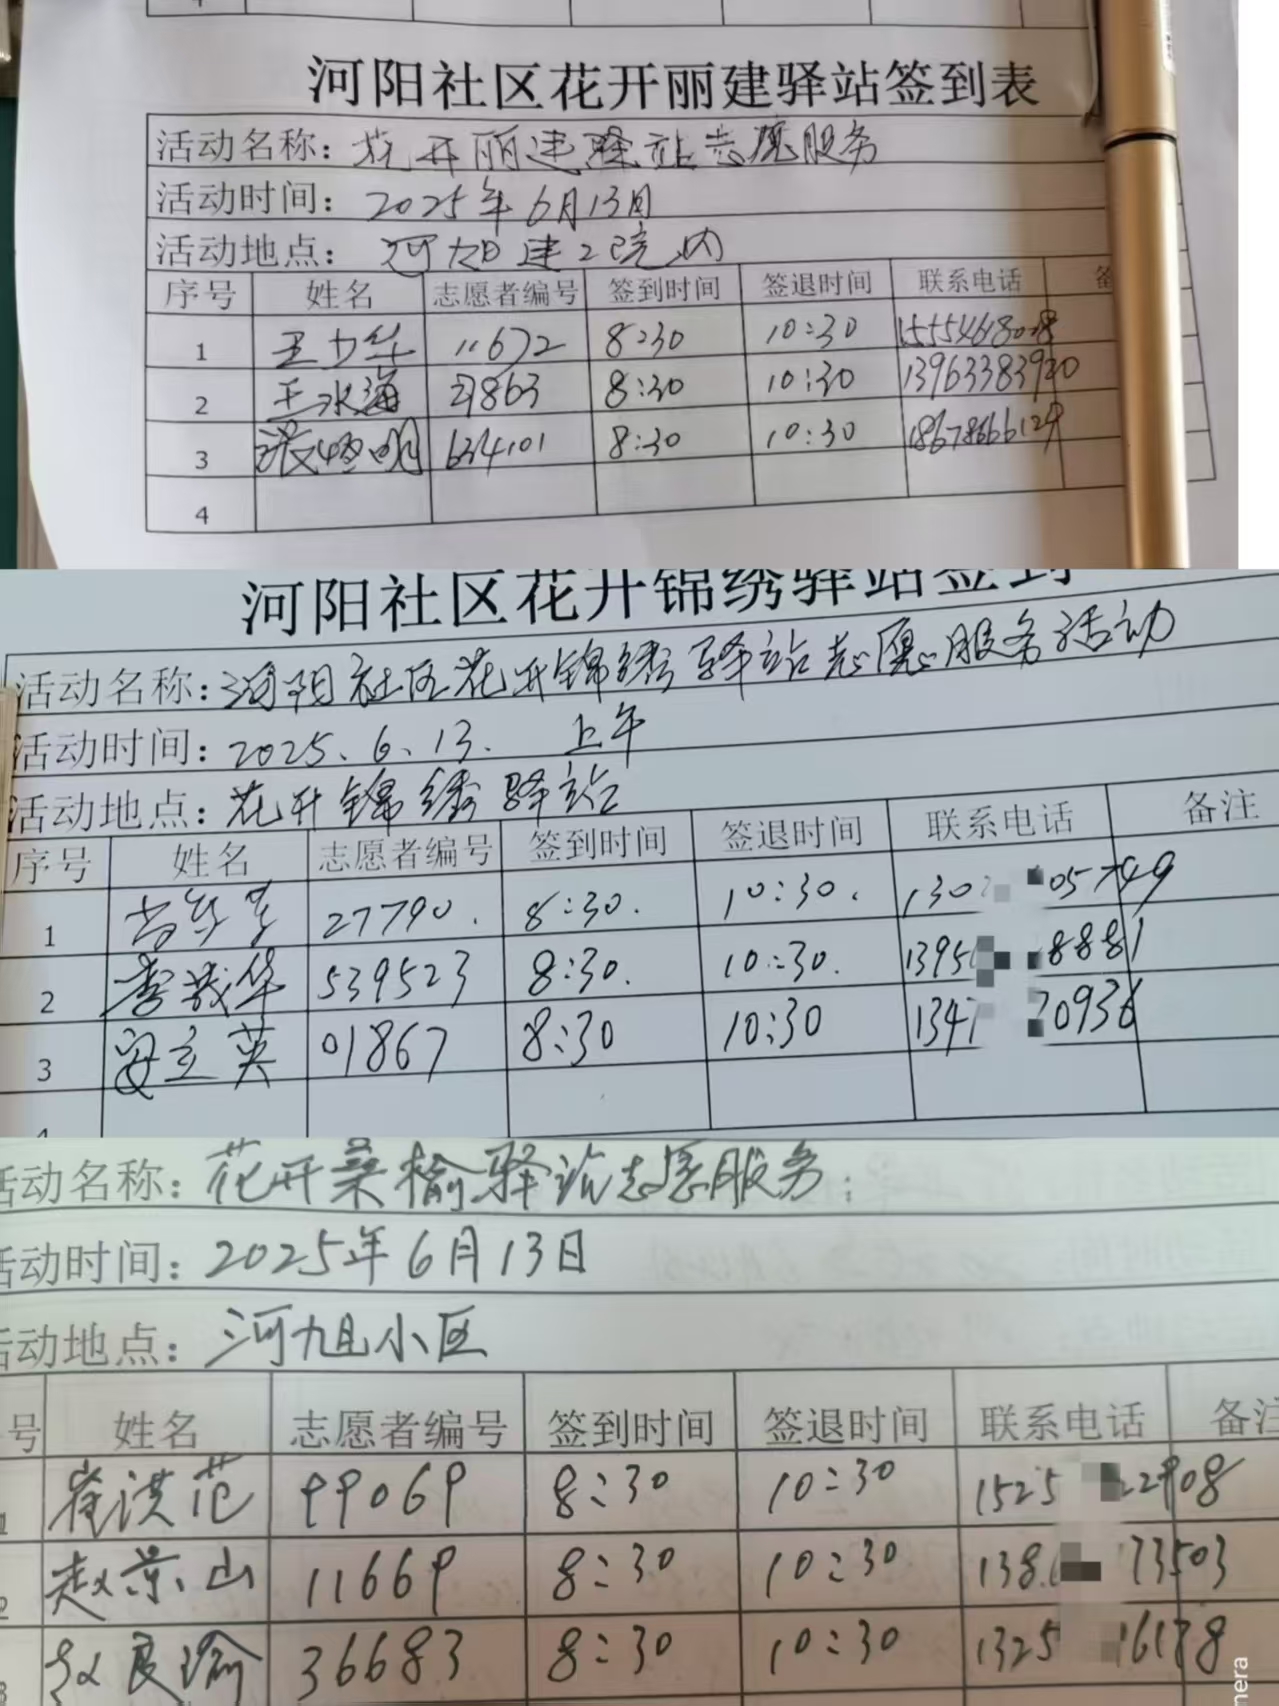 河阳社区花开丽建驿站签到表
活动名称：花开丽建驿站志愿服务
活动时间：2025年6月13日
活动地点：河旭建2院内
序号 姓名 志愿者编号 签到时间 签退时间 联系电话 备
1 王力华 11672 8:30 10:30
2 王水海 8:30 10:30 13963383920
3 明 634101 8:30 10:30 18678666129
4
河阳社区花开锦绣驿站签到
活动名称：河阳社区花开锦绣驿站志愿服务活动
活动时间：2025.6.13. 上午
活动地点：花开锦绣驿站
序号 姓名 志愿者编号 签到时间 签退时间 联系电话 备注
1 27790. 8:30. 10:30. 130 05749
2 李成华 539523 8:30. 10:30. 1395 8881
3 安立英 01867 8:30 10:30 134 70936
活动名称：花开桑榆驿站志愿服务
活动时间：2025年6月13日
活动地点：河旭小区
号 姓名 志愿者编号 签到时间 签退时间 联系电话 备注
1 崔洪范 99069 8:30 10:30 1525 22908
2 赵景山 11669 8:30 10:30 138 73503
3 赵良瑜 36683 8:30 10:30 1325 16188
mera